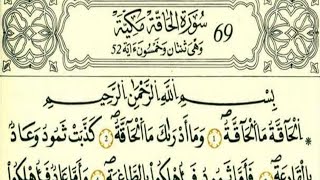 سُورَةُ الْحَاقَّةِ مَكِّيَّةٌ 69
وَهْيَ ثِنْتَانِ وَخَمْسُونَ ءَايَةً 52
بِسْمِ اِللَّهِ الرَّحْمَٰنِ الرَّحِيمِ
اِلْحَآقَّةُ مَا اَلْحَآقَّةُ وَمَآ أَدْرَيٰكَ مَا اَلْحَآقَّةُ كَذَّبَتْ ثَمُودُ وَعَادٌۢ
بِالْقَارِعَةِ فَأَمَّا ثَمُودُ فَأُهْلِكُواْ بِالطَّاغِيَةِ وَأَمَّا عَادٌ فَأُهْلِكُواْ